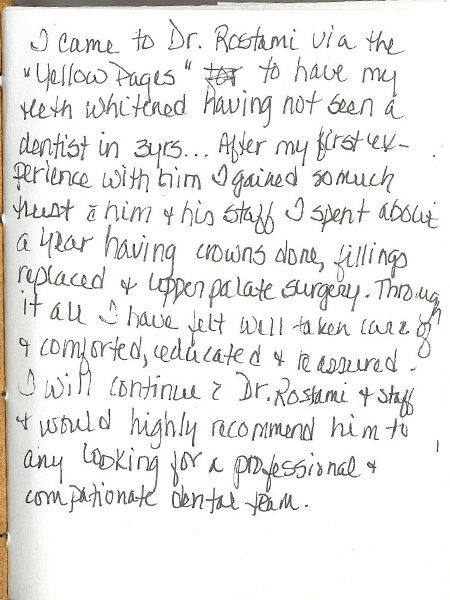 I came to Dr. Rostami via the
"Yellow Pages" for to have my
teeth whitened having not seen a
dentist in 3yrs... After my first ex-
perience with him I gained so much
trust c̄ him & his staff I spent about
a year having crowns done, fillings
replaced & upper palate surgery. Through
it all I have felt well taken care of
& comforted, educated & reassured.
I will continue c̄ Dr. Rostami & staff
& would highly recommend him to
any looking for a professional &
compationate dental team.